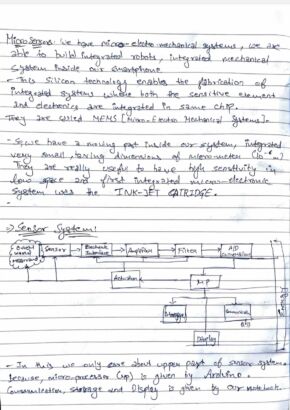 Microsensors: We have micro-electro mechanical systems, we are
able to build integrated robots, integrated mechanical
system inside our smartphone.
- This silicon technology enables the fabrication of
integrated systems where both the sensitive element
and electronics are integrated in same chip.
They are called MEMS [Micro-Electro Mechanical Systems].
- So, we have a moving part inside our system, integrated
very small, having dimensions of micro-meter (10⁻⁶ m)
They are really useful to have high sensitivity in
low space and first integrated micro-electronic
system was the INK-JET CATRIDGE.
=> Sensor System:
Sensor
Electronic Interface
Amplifier
Filter
A/D
Actuators
μP
Storage
Display
- In this we only care about upper part of sensor system
because, micro-processor (μp) is given by Arduino.
Communication, storage and Display is given by our notebook.